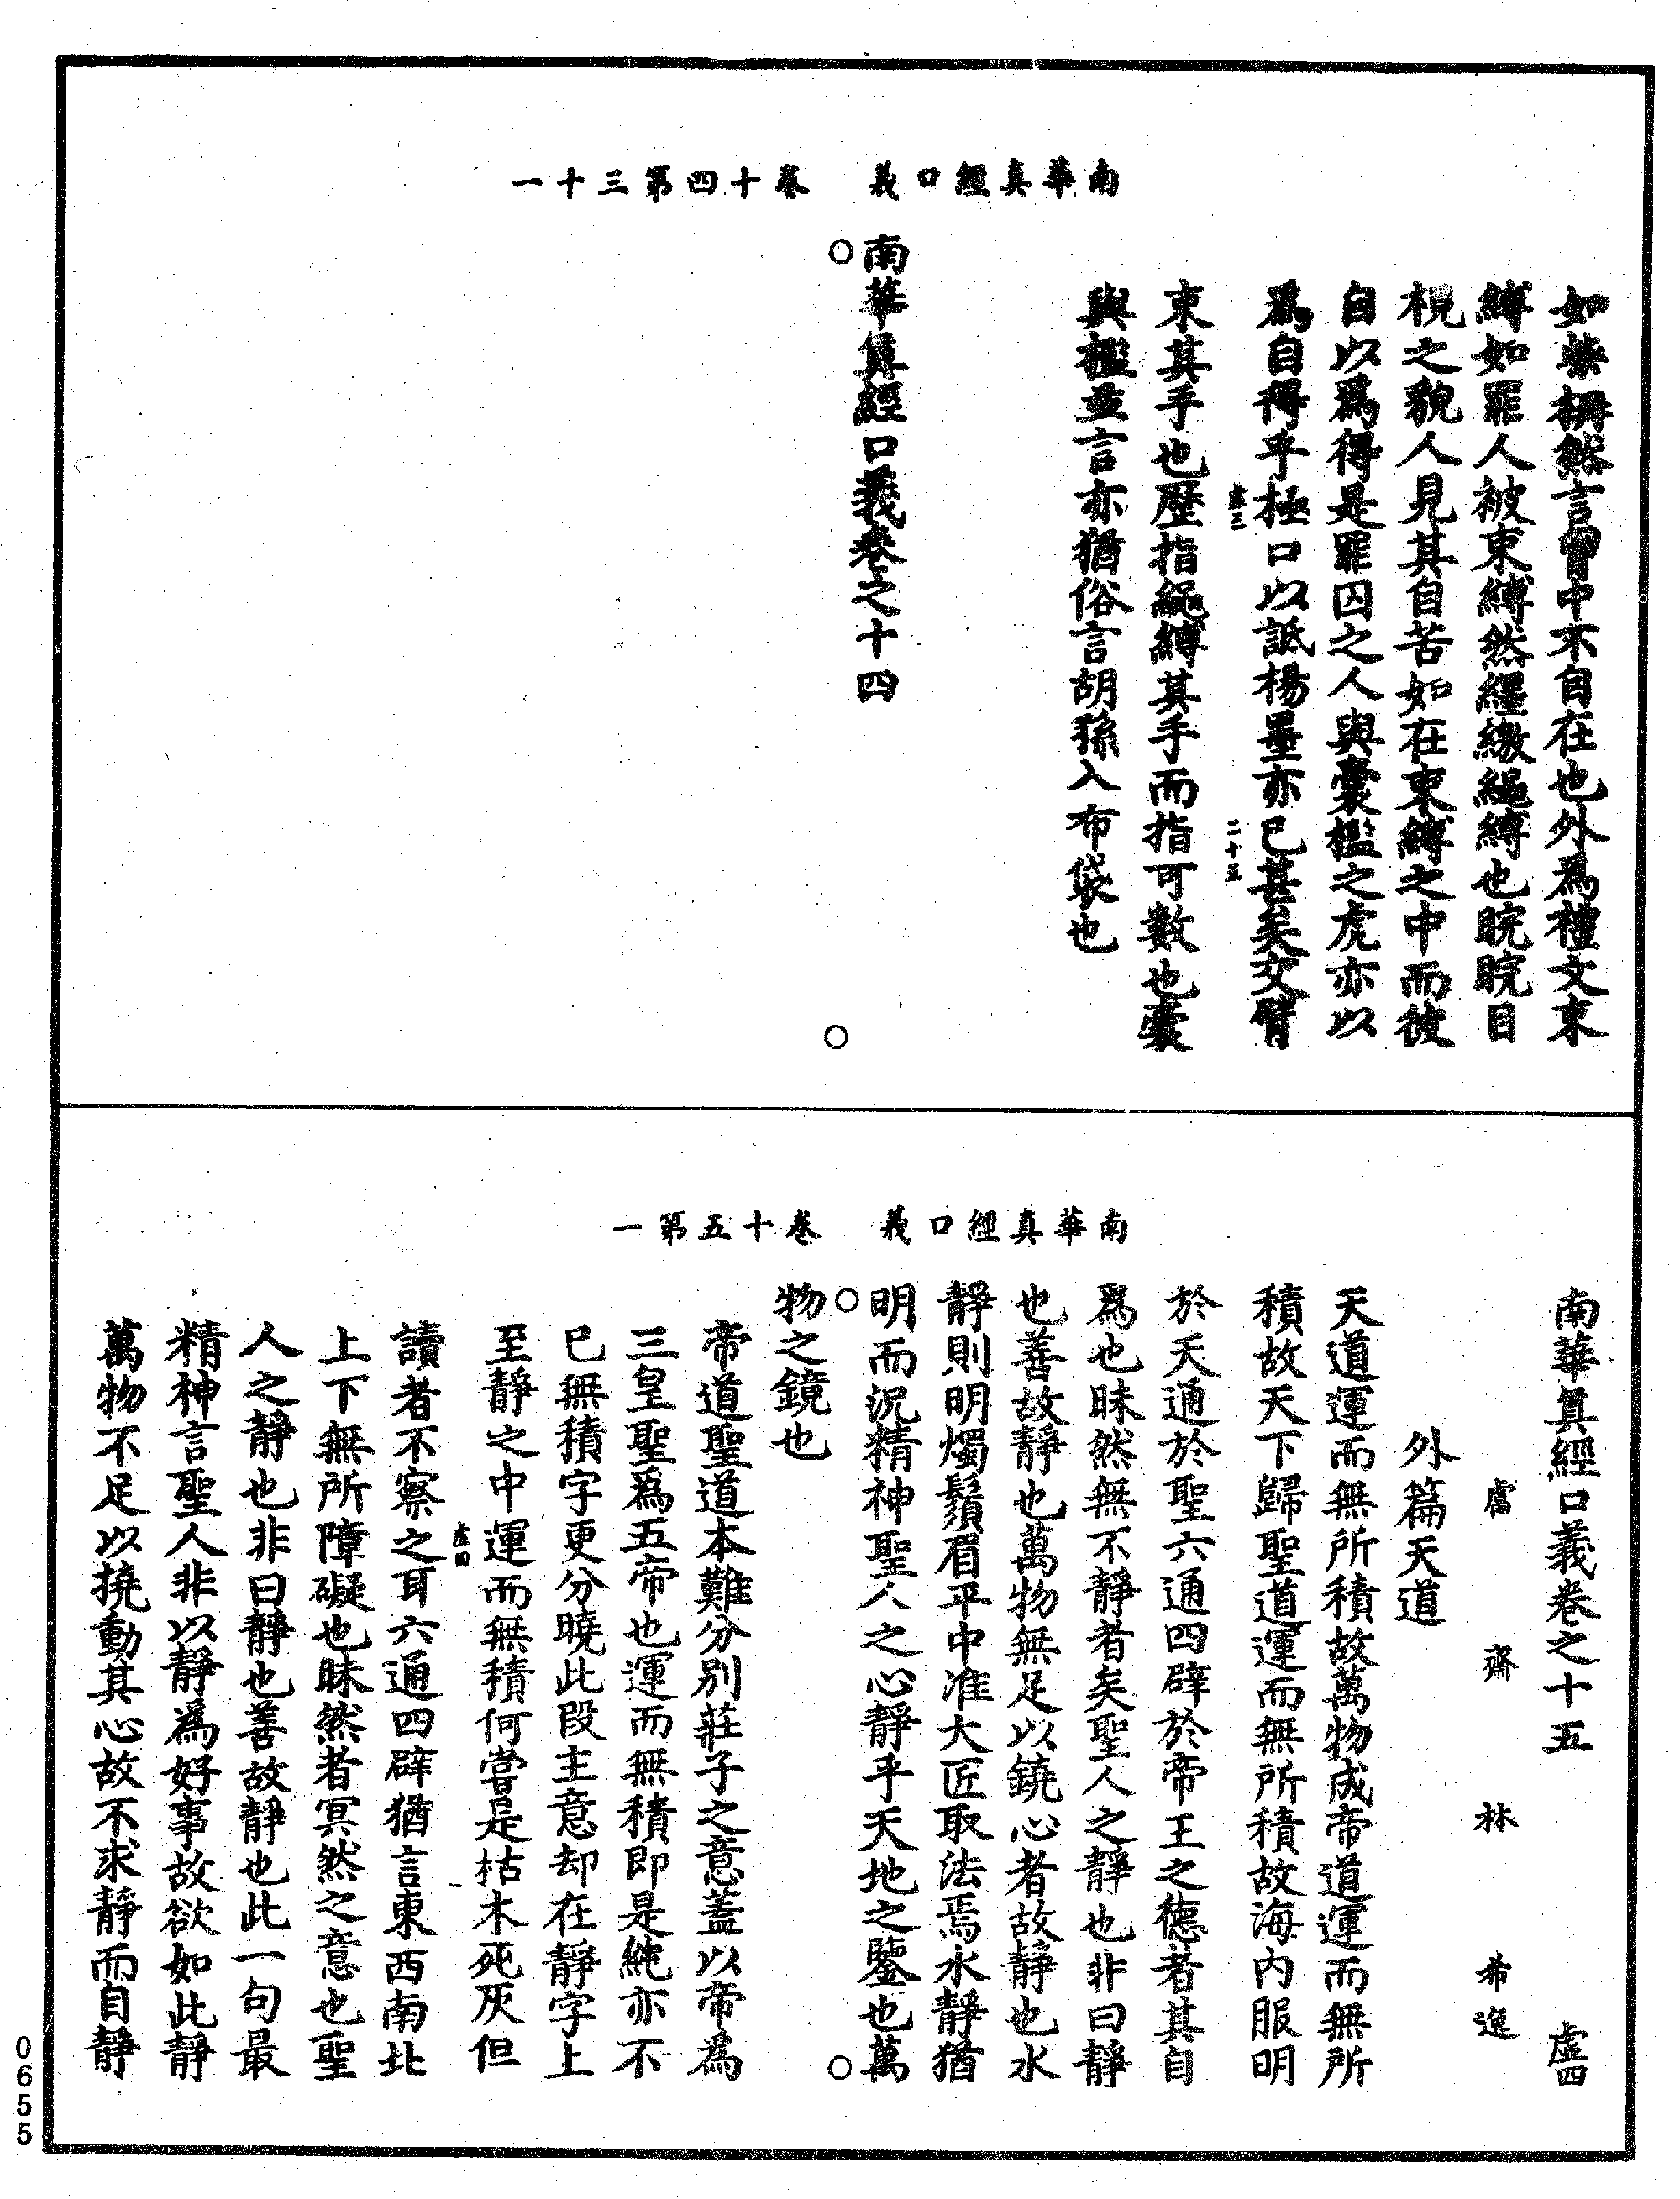 南華真經口義　卷十四第三十一
如柴柵然言胷中不自在也外為禮文束
縛如罪人被束縛然纆繳繩縛也睆睆目
視之貌人見其自苦如在束縛之中而彼
自以爲得是罪囚之人與囊檻之虎亦以
爲自得乎極口以詆楊墨亦已甚矣交臂
虛三　二十五
束其手也歷指繩縛其手而指可數也囊
與檻並言亦猶俗言胡孫入布袋也
南華眞經口義卷之十四
○　○
南華真經口義　卷十五第一
南華眞經口義卷之十五　虛四
鬳齋林希逸
外篇天道
天道運而無所積故萬物成帝道運而無所
積故天下歸聖道運而無所積故海內服明
於天通於聖六通四辟於帝王之德者其自
爲也昧然無不靜者矣聖人之靜也非曰靜
也善故靜也萬物無足以鐃心者故靜也水
靜則明燭鬚眉平中准大匠取法焉水靜猶
明而況精神聖人之心靜乎天地之鑒也萬
○　○
物之鏡也
帝道聖道本難分別莊子之意蓋以帝為
三皇聖爲五帝也運而無積即是純亦不
已無積字更分曉此段主意却在靜字上
至靜之中運而無積何嘗是枯木死灰但
虛四
讀者不察之耳六通四辟猶言東西南北
上下無所障礙也昧然者冥然之意也聖
人之靜也非曰靜也善故靜也此一句最
精神言聖人非以靜為好事故欲如此靜
萬物不足以撓動其心故不求靜而自靜
0655